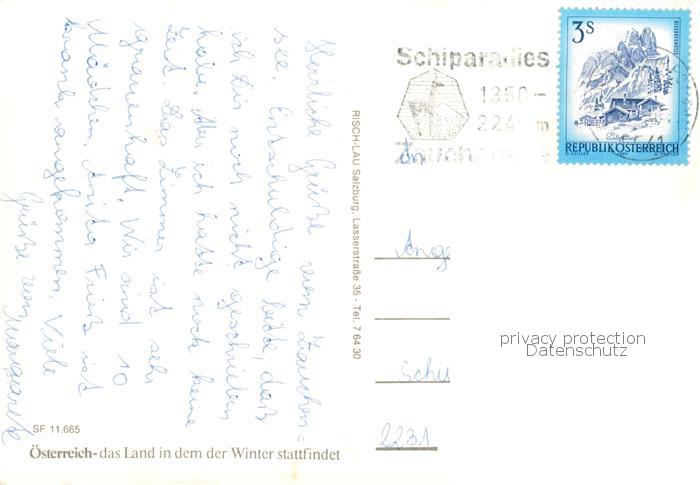 Herrliche Grüße vom Zauchen=
see. Entschuldige bitte, daß
ich Dir noch nicht geschrieben
habe. Aber ich hatte noch keine
Zeit. Das Zimmer ist sehr
grauenhaft. Wir sind 10
Mädchen. Anita Fritz ist
krank angekommen. Viele
Grüße von
Margarete
SF 11.665
Österreich - das Land in dem der Winter stattfindet
RISCH-LAU Salzburg, Lasserstraße 35 - Tel. 7 64 30
Schiparadies
1350 -
224 m
Zauchensee
3S
REPUBLIK ÖSTERREICH
An
Ange
Schu
2231
privacy protection
Datenschutz